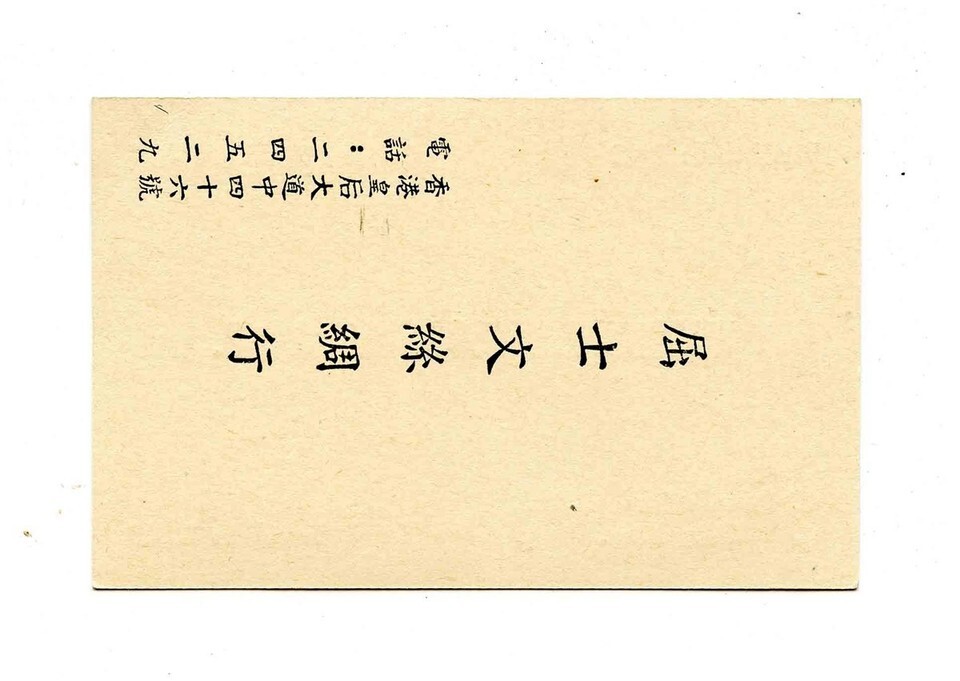 屈士文絲綢行
香港皇后大道中四十六號
電話：二四五二九